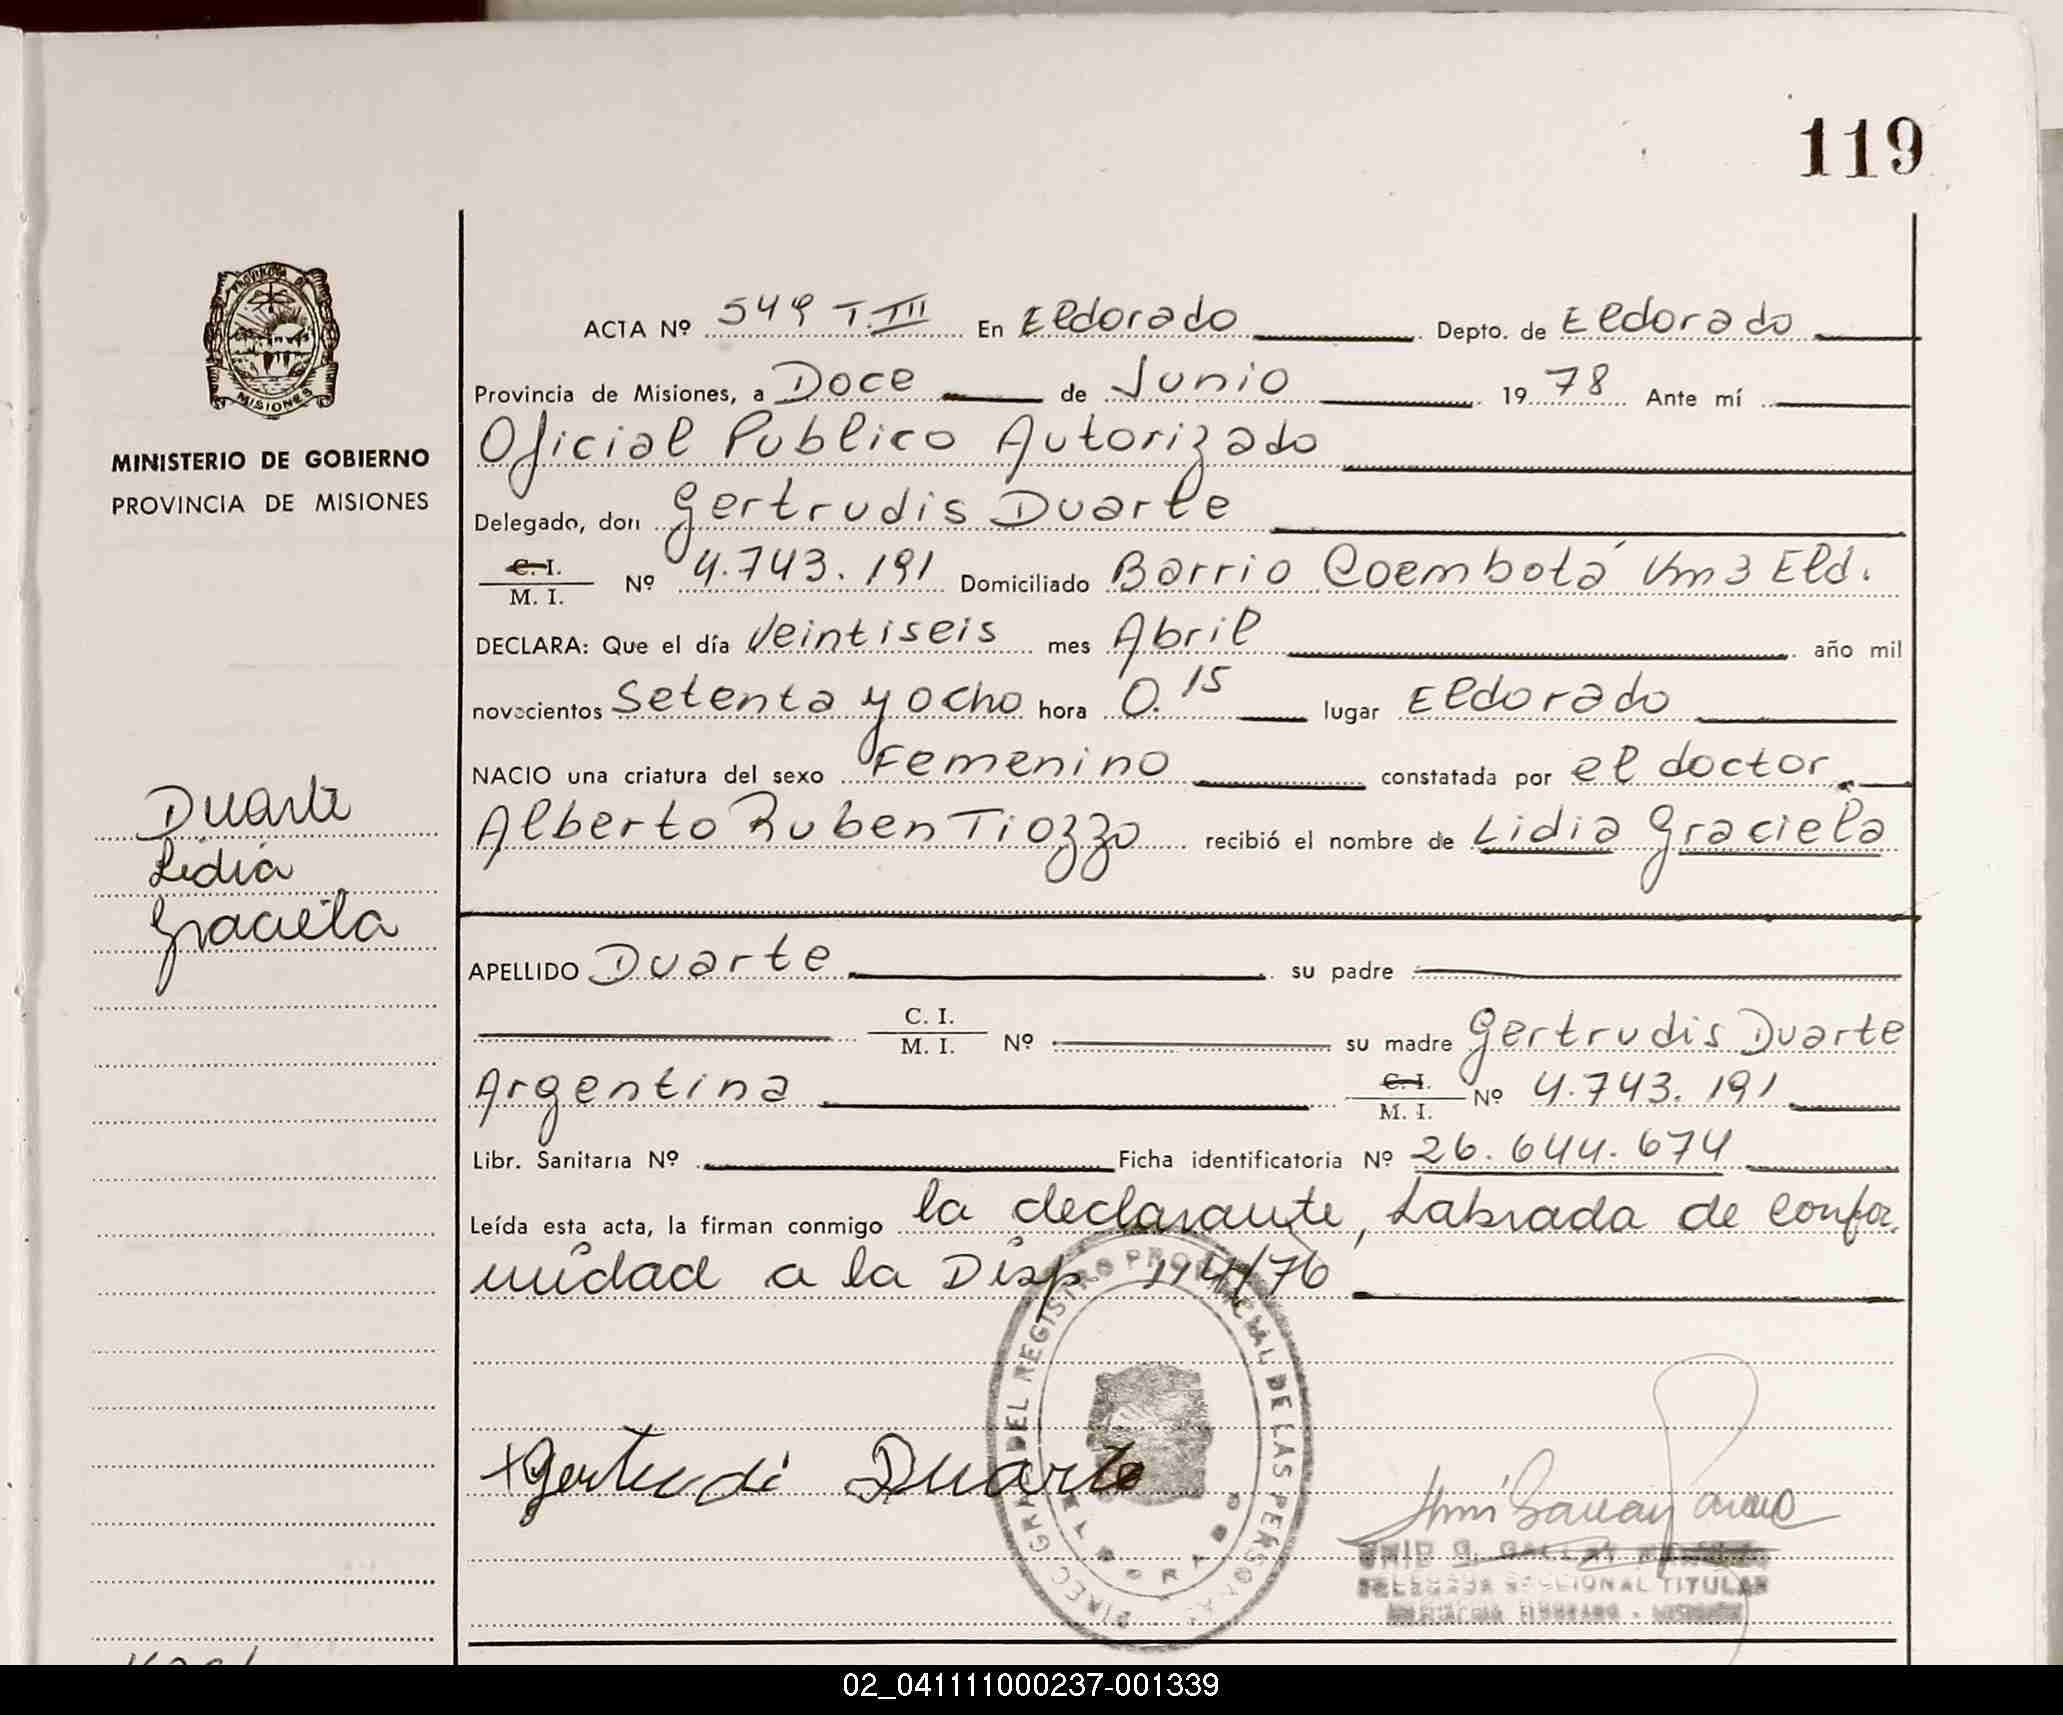 119
PROVINCIA DE
MISIONES
MINISTERIO DE GOBIERNO
PROVINCIA DE MISIONES
Duarte
Lidia
Graciela
ACTA Nº 549 T.III En Eldorado Depto. de Eldorado
Provincia de Misiones, a Doce de Junio 1978 Ante mí
Oficial Publico Autorizado
Delegado, don Gertrudis Duarte
C. I. / M. I. Nº 4.743.191 Domiciliado Barrio Coembotá Km3 Eld.
DECLARA: Que el día Veintiseis mes Abril año mil
novecientos Setenta y ocho hora 0.15 lugar Eldorado
NACIO una criatura del sexo Femenino constatada por el doctor
Alberto Ruben Tiozzo recibió el nombre de Lidia Graciela
APELLIDO Duarte su padre
C. I. / M. I. Nº su madre Gertrudis Duarte
Argentina C. I. / M. I. Nº 4.743.191
Libr. Sanitaria Nº Ficha identificatoria Nº 26.644.674
Leída esta acta, la firman conmigo la declarante, Labrada de confor
midad a la Disp 174/76
DIREC. GRAL. DEL REGISTRO PROVINCIAL DE LAS PERSONAS
ELDORADO
x Gertrudi Duarte
TITULAR
02_041111000237-001339